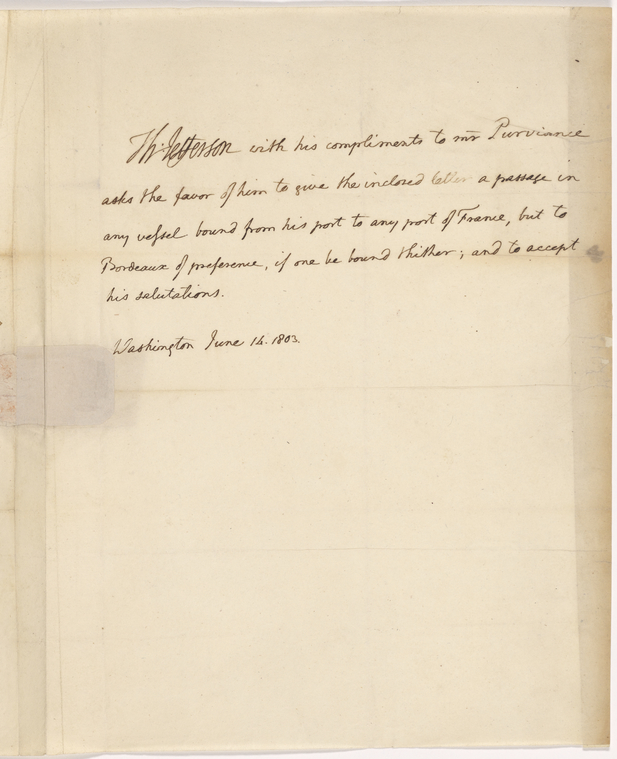 Th: Jefferson with his compliments to mr Purviance
asks the favor of him to give the inclosed letter a passage in
any vessel bound from his port to any port of France, but to
Bordeaux of preference, if one be bound thither; and to accept
his salutations.
Washington June 14. 1803.